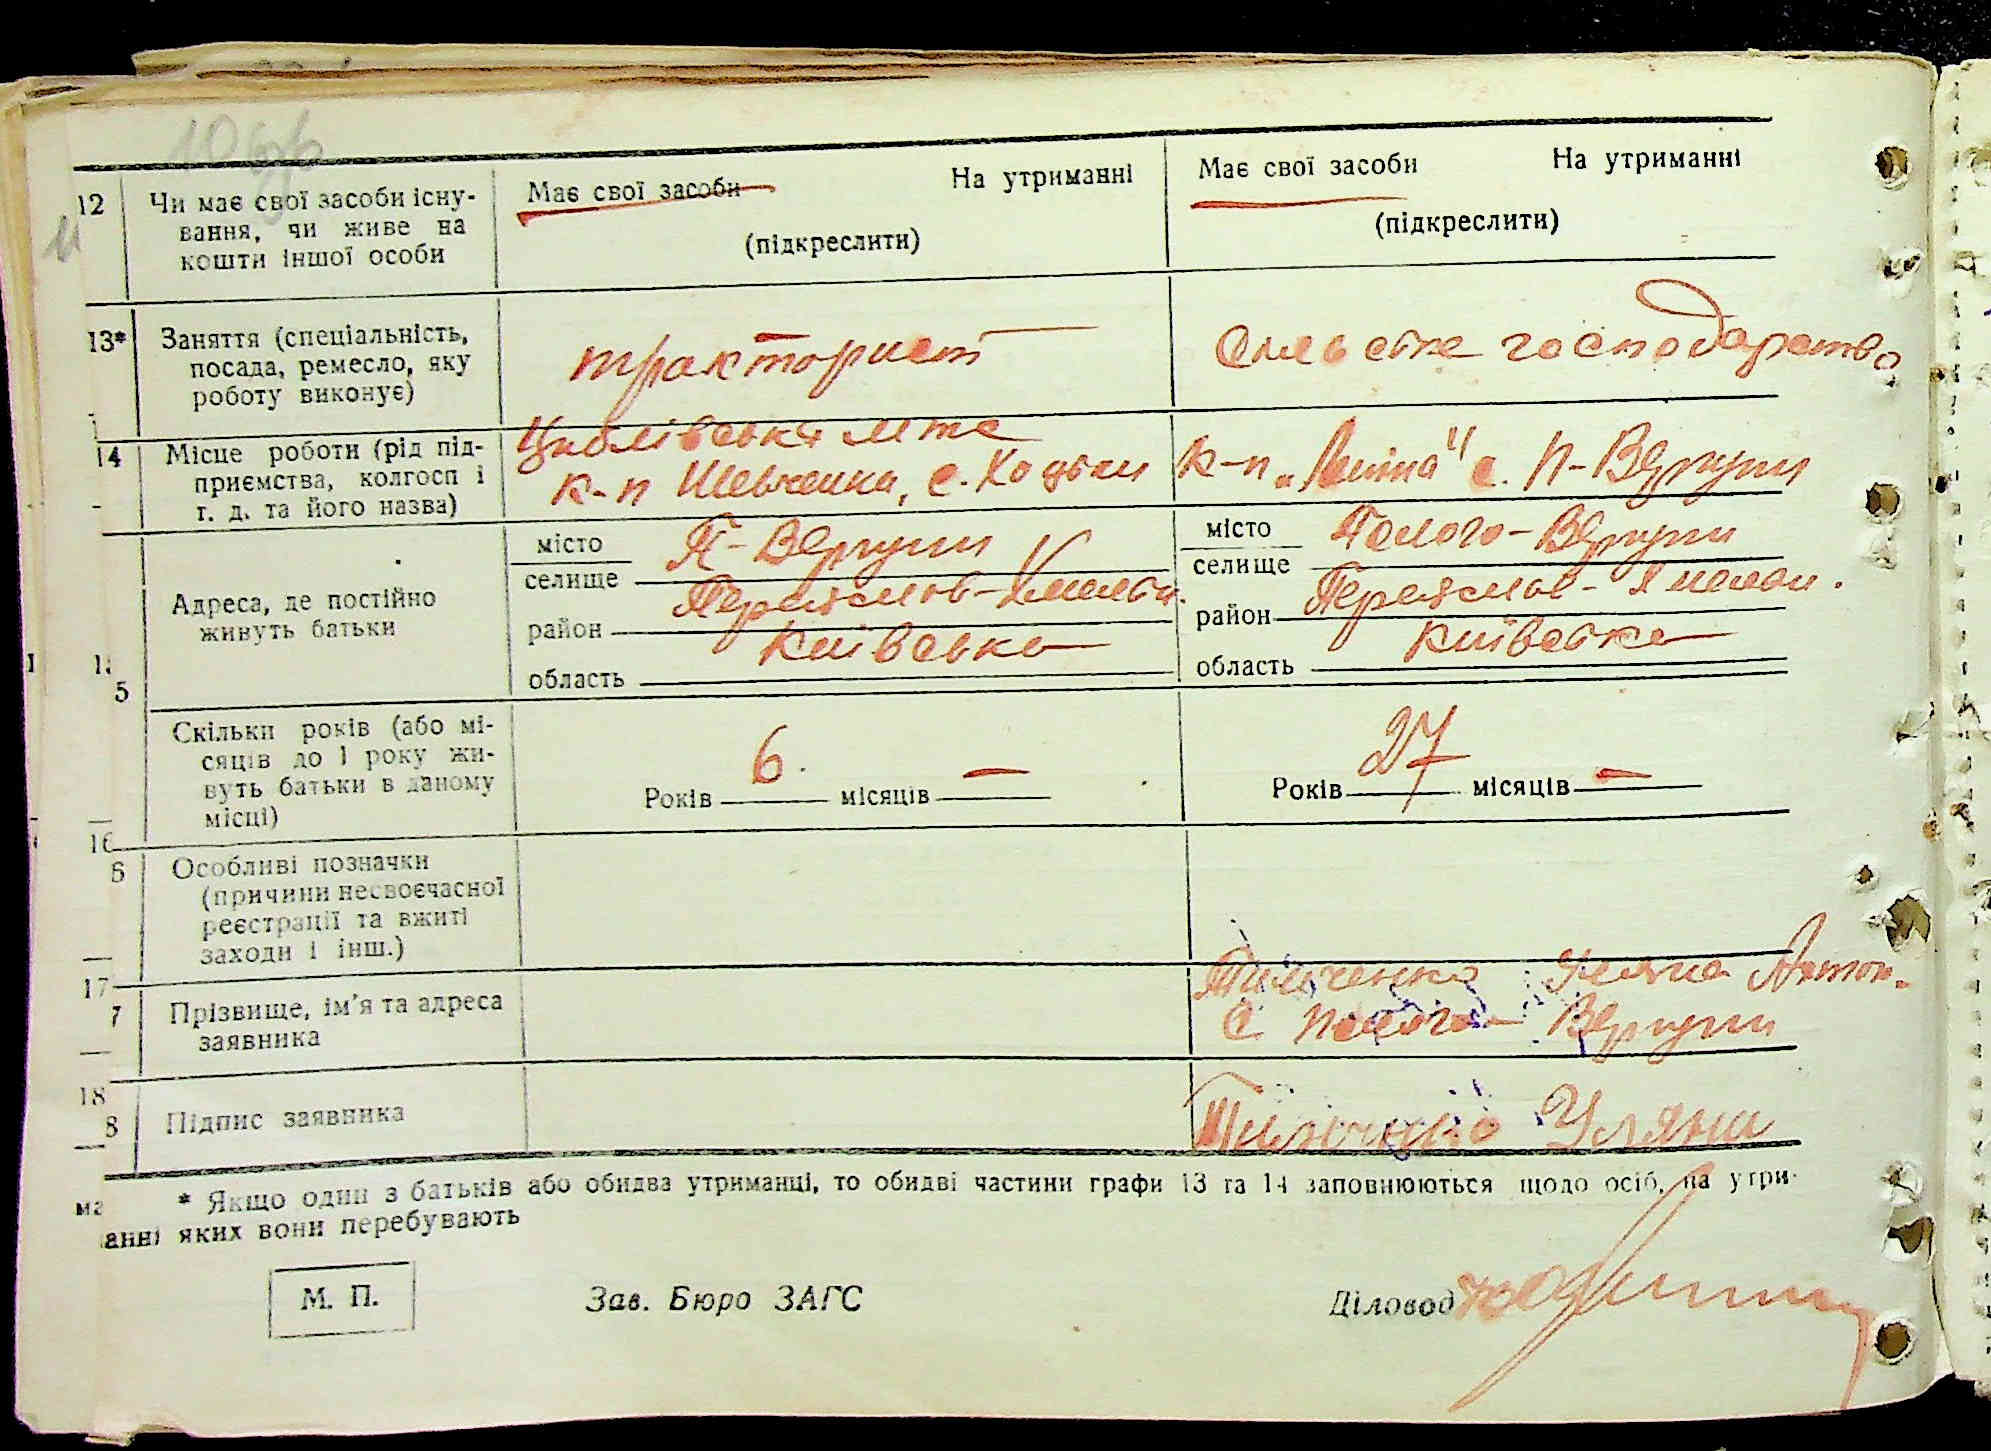 12 Чи має свої засоби існу- Має свої засоби На утриманні Має свої засоби На утриманні
вання, чи живе на (підкреслити) (підкреслити)
кошти іншої особи
13* Заняття (спеціальність, тракторист сильське господарство
посада, ремесло, яку
роботу виконує)
14 Місце роботи (рід під- Циблівська мтс к-п „Леніна" с. П-Вергуни
приємства, колгосп і к-п Шевченка, с. Хоцьки
т. д. та його назва)
місто П-Вергуни місто Полого-Вергуни
селище селище
Адреса, де постійно район Переяслов-Хмельн. район Переяслов-Хмельн.
живуть батьки область Київська область Київська
15
5
Скільки років (або мі- Років 6 місяців — Років 27 місяців —
сяців до 1 року жи-
вуть батьки в даному
місці)
16
6 Особливі позначки
(причини несвоєчасної
реєстрації та вжиті
заходи і інш.)
17
7 Прізвище, ім'я та адреса Уляна Антон.
заявника с Полого-Вергуни
18
8 Підпис заявника Уляна
ма * Якщо один з батьків або обидва утриманці, то обидві частини графи 13 та 14 заповнюються щодо осіб, на утри-
анні яких вони перебувають
М. П. Зав. Бюро ЗАГС Діловод